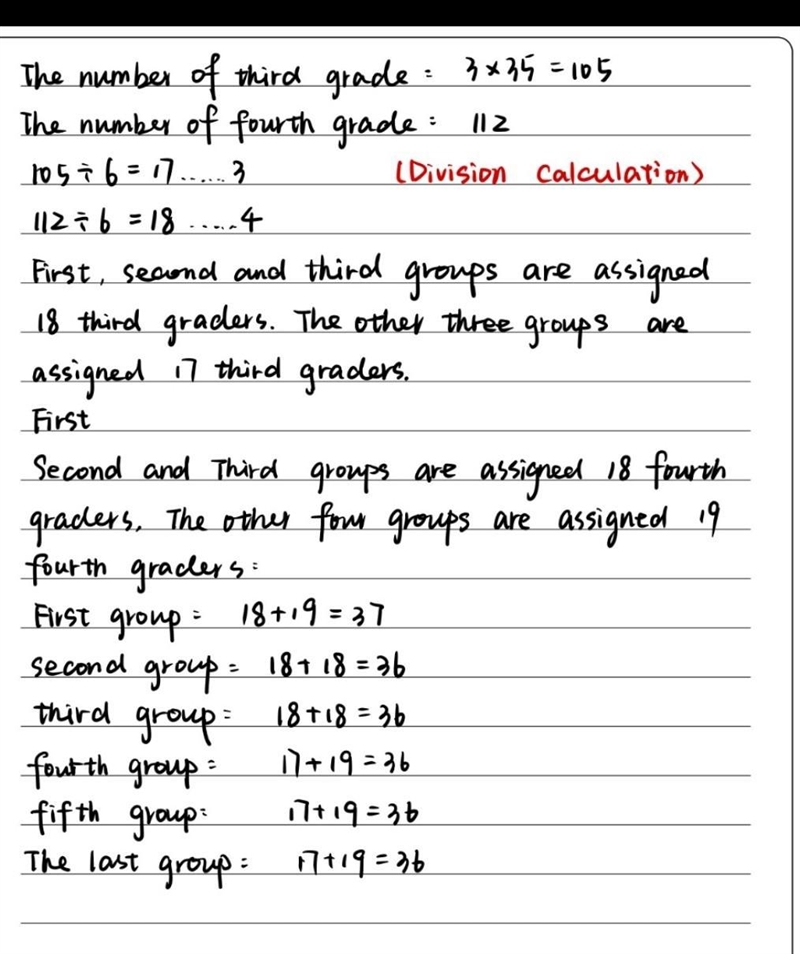 The number of third grade: 3×35=105
The number of fourth grade: 112
105÷6=17......3 (Division Calculation)
112÷6=18......4
First, second and third groups are assigned
18 third graders. The other three groups are
assigned 17 third graders.
First
Second and Third groups are assigned 18 fourth
graders. The other four groups are assigned 19
fourth graders:
First group: 18+19=37
second group: 18+18=36
third group: 18+18=36
fourth group: 17+19=36
fifth group: 17+19=36
The last group: 17+19=36